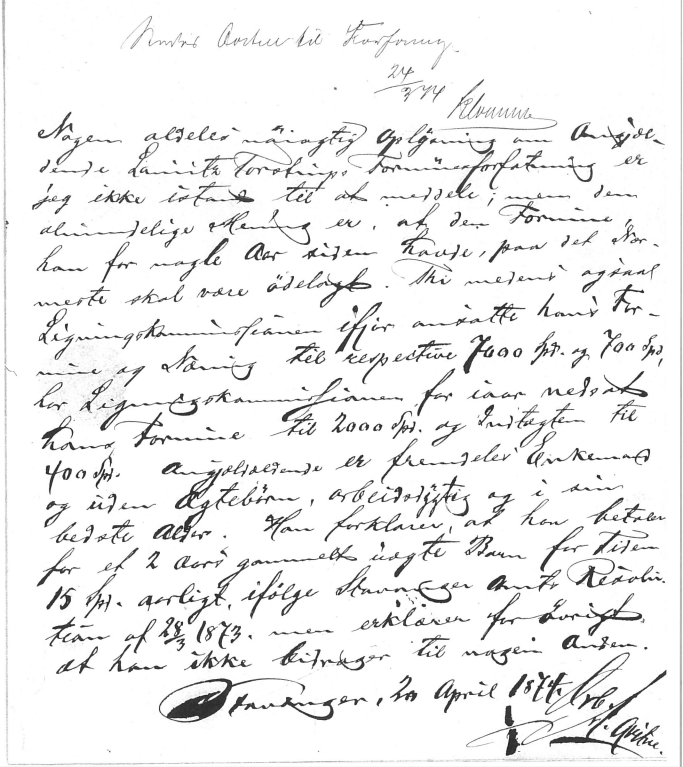 til Forsorg.
24/3 74
Nogen aldeles nøiagtig Oplysning om Angjæl-
dende Lauritz Torstrups Formuesforfatning er
jeg ikke istand til at meddele; men den
almindelige Mening er, at den Formue,
han for nogle Aar siden havde, paa det Nær-
meste skal være ødelagt. Thi medens ogsaa
Ligningskommissionen ifjor ansatte hans For-
mue og Næring til respective 7000 Spd. og 700 Spd,
har Ligningskommissionen for iaar nedsat
hans Formue til 2000 Spd. og Indtægten til
400 Spd. Angjældende er fremdeles Enkemand
og uden Ægtebørn, arbeidsdygtig og i sin
bedste Alder. Han forklarer, at han betaler
for et 2 Aars gammelt uægte Barn for Tiden
15 Spd. aarligt, ifølge Stavanger Amts Resolu-
tion af 28/3 1873. men erklærer forøvrigt
at han ikke bidrager til nogen Anden.
Stavanger, 20 April 1874. Ærb.